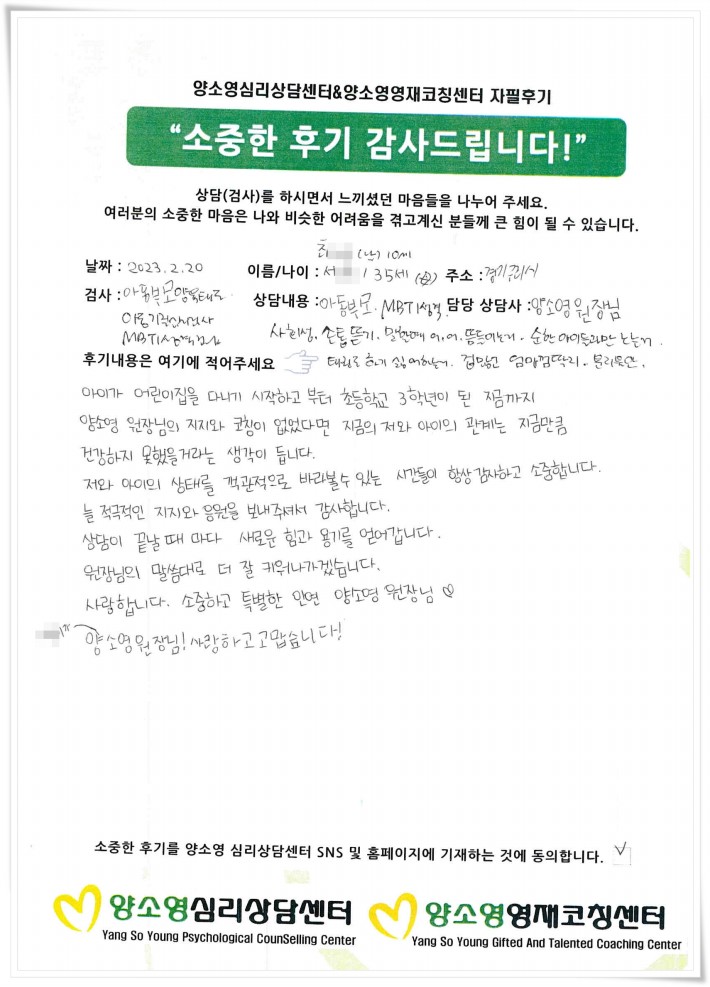 양소영심리상담센터&양소영영재코칭센터 자필후기
“소중한 후기 감사드립니다!”
상담(검사)를 하시면서 느끼셨던 마음들을 나누어 주세요.
여러분의 소중한 마음은 나와 비슷한 어려움을 겪고계신 분들께 큰 힘이 될 수 있습니다.
최 (남) 10세
날짜 : 2023.2.20 이름/나이 : 서 / 35세 (女) 주소 : 경기 구리시
검사 : 아동부모양육태도 상담내용 : 아동부모. MBTI성격 담당 상담사 : 양소영 원장님
MBTI성격검사
사회성. 손톱뜯기. 말할때 어,어. 순한 아이들과만 노는거.
후기내용은 여기에 적어주세요 겁많고 엄마껌딱지. 분리불안.
아이가 어린이집을 다니기 시작하고 부터 초등학교 3학년이 된 지금까지
양소영 원장님의 지지와 코칭이 없었다면 지금의 저와 아이의 관계는 지금만큼
건강하지 못했을거라는 생각이 듭니다.
저와 아이의 상태를 객관적으로 바라볼수 있는 시간들이 항상 감사하고 소중합니다.
늘 적극적인 지지와 응원을 보내주셔서 감사합니다.
상담이 끝날 때 마다 새로운 힘과 용기를 얻어갑니다.
원장님의 말씀대로 더 잘 키워나가겠습니다.
사랑합니다. 소중하고 특별한 인연 양소영 원장님 ♡
양소영원장님! 사랑하고 고맙습니다!
소중한 후기를 양소영 심리상담센터 SNS 및 홈페이지에 기재하는 것에 동의합니다. ✓
양소영심리상담센터 양소영영재코칭센터
Yang So Young Psychological CounSelling Center Yang So Young Gifted And Talented Coaching Center